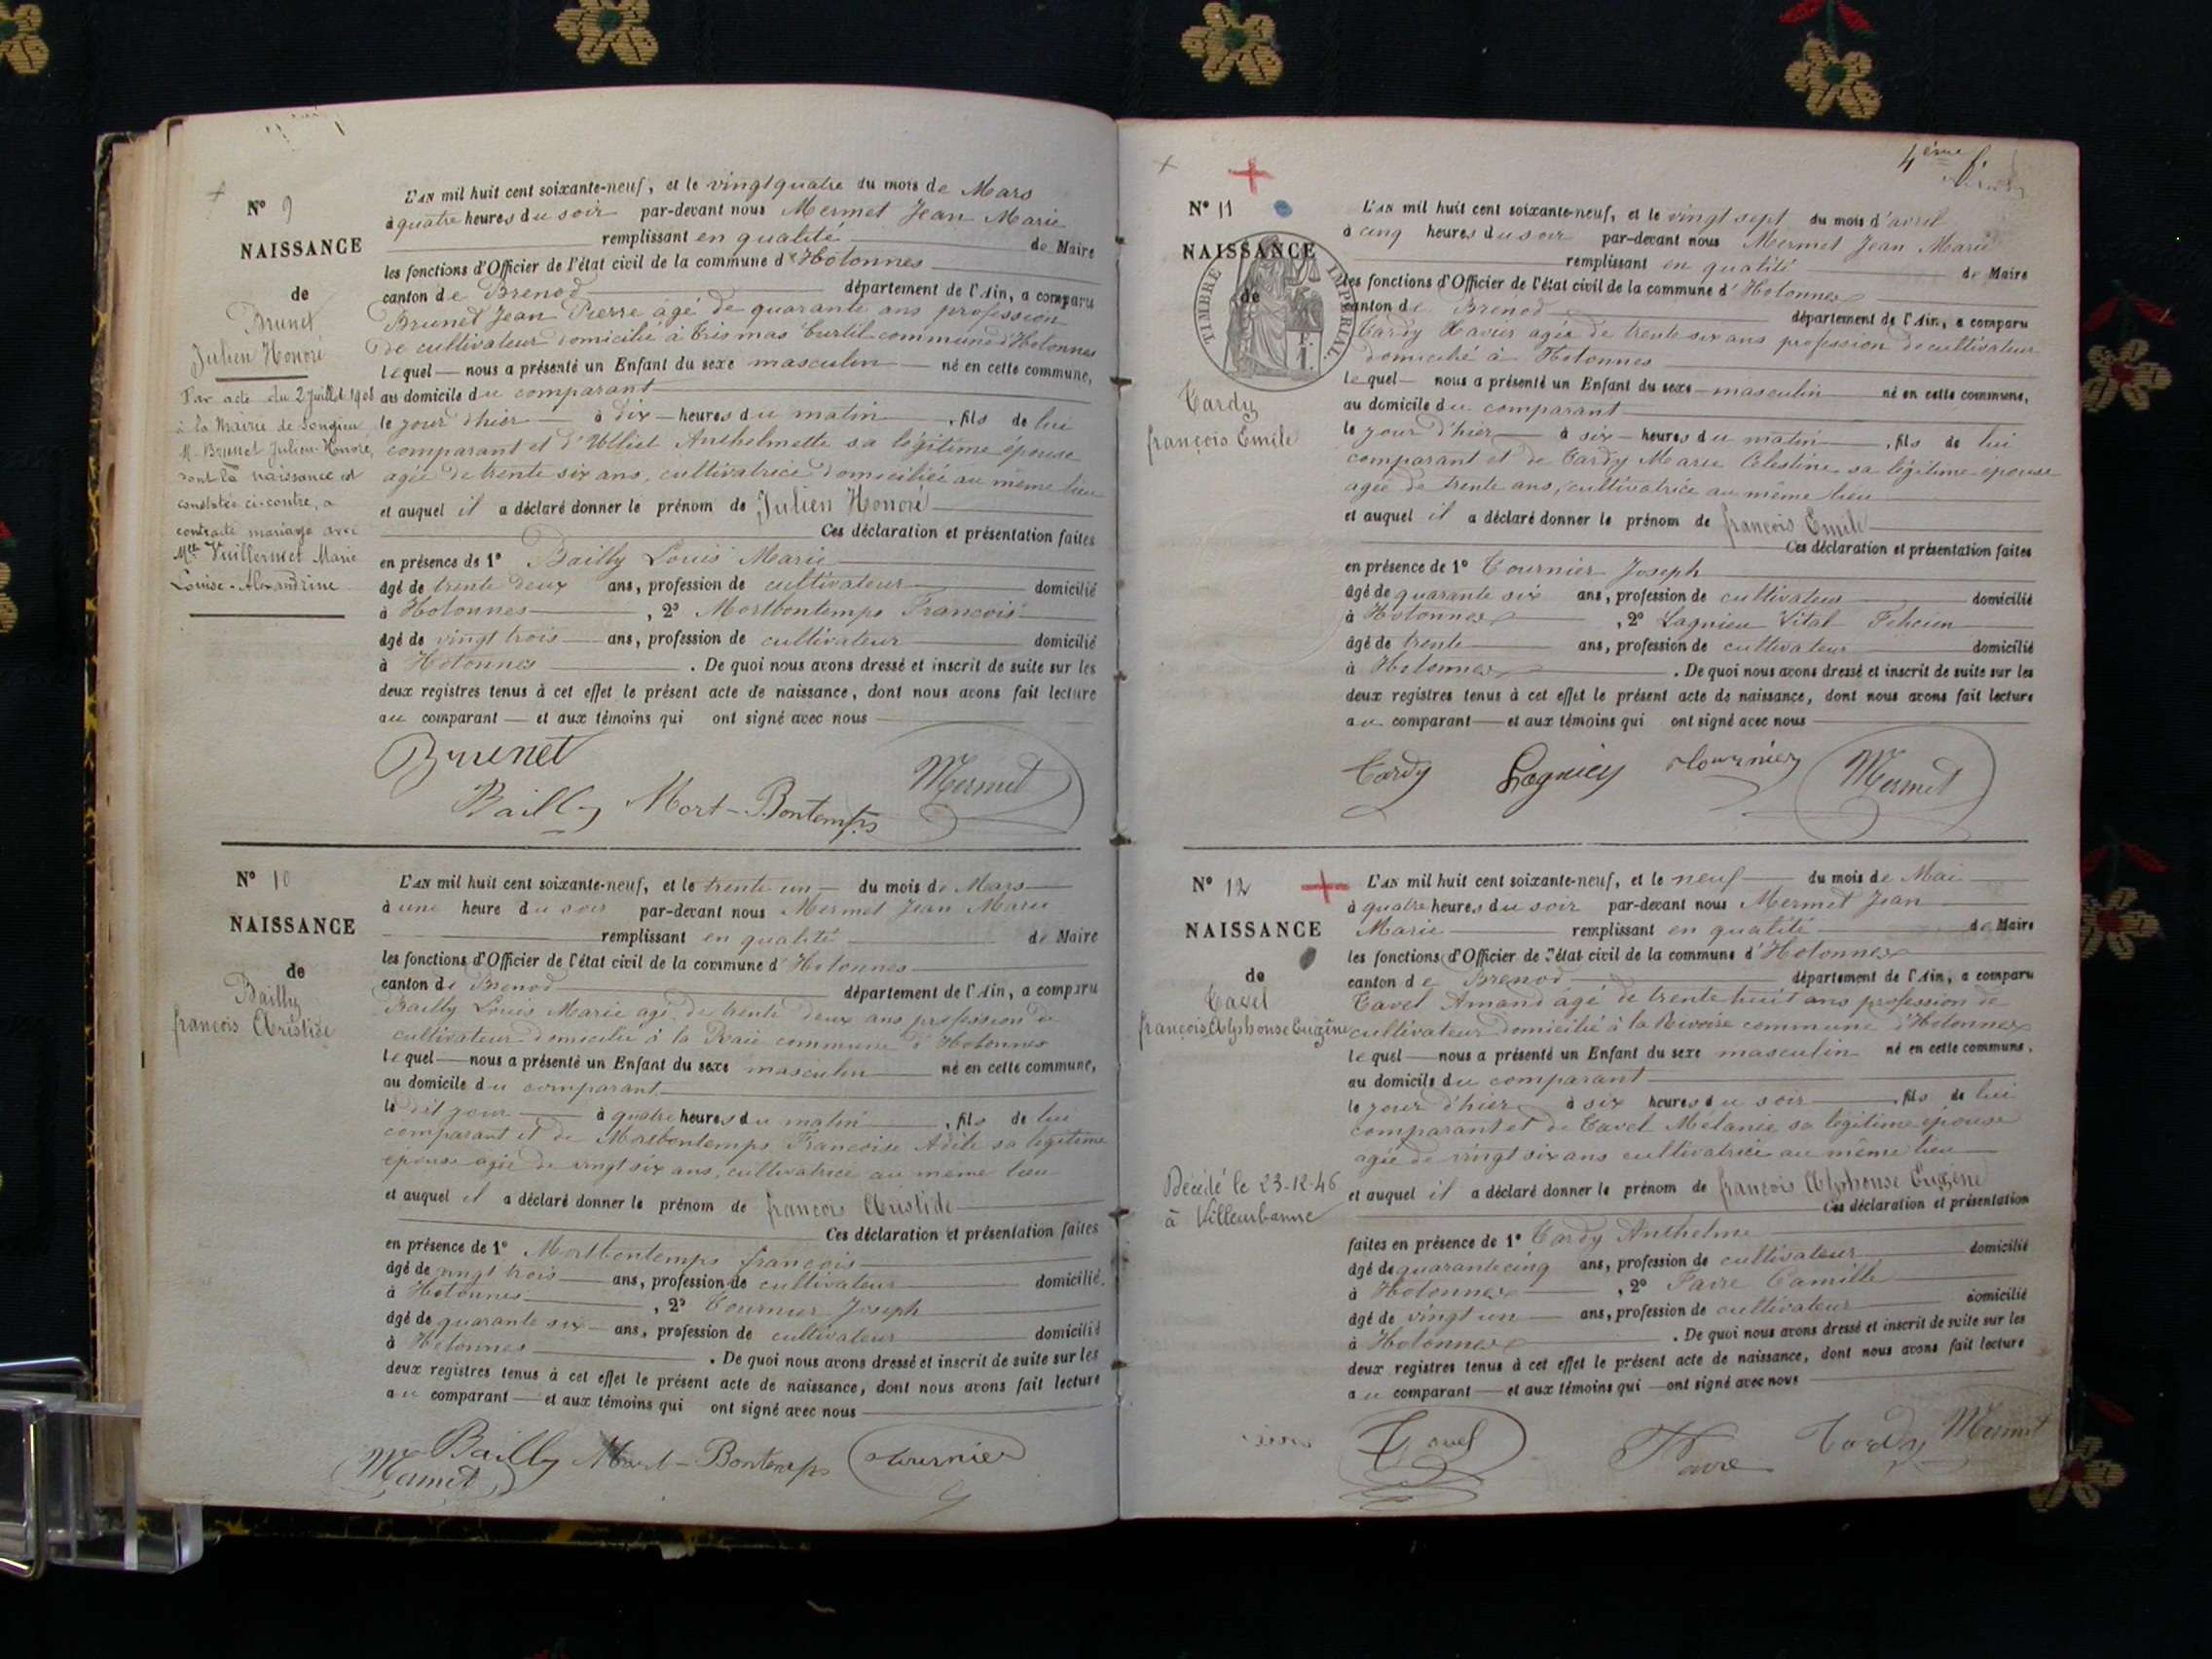 N° 9
NAISSANCE
de
Brunet
Julien Honoré
Par acte du 2 Juillet 1908
à la Mairie de Songieu
M. Brunet Julien-Honoré,
dont la naissance est
constatée ci-contre, a
contracté mariage avec
Mlle Vuillermet Marie
Louise-Alexandrine
L'AN mil huit cent soixante-neuf, et le vingt quatre du mois de Mars
à quatre heures du soir par-devant nous Mermet Jean Marie
remplissant en qualité de Maire
les fonctions d'Officier de l'état civil de la commune d'Hotonnes
canton de Brenod département de l'Ain, a comparu
Brunet Jean Pierre agé de quarante ans profession
de cultivateur domicilié à commune d'Hotonnes
lequel nous a présenté un Enfant du sexe masculin né en cette commune,
au domicile du comparant
le jour d'hier à dix heures du matin, fils de lui
comparant et d' Anthelmette sa légitime épouse
agée de trente six ans, cultivatrice domiciliée au même lieu
et auquel il a déclaré donner le prénom de Julien Honoré
Ces déclaration et présentation faites
en présence de 1° Bailly Louis Marie
âgé de trente deux ans, profession de cultivateur domicilié
à Hotonnes, 2° Mortbontemps François
âgé de vingt trois ans, profession de cultivateur domicilié
à Hotonnes. De quoi nous avons dressé et inscrit de suite sur les
deux registres tenus à cet effet le présent acte de naissance, dont nous avons fait lecture
au comparant et aux témoins qui ont signé avec nous
Brunet
Bailly Mort-Bontemps Mermet
N° 10
NAISSANCE
de
Bailly
françois Aristide
L'AN mil huit cent soixante-neuf, et le trente un du mois de Mars
à une heure du soir par-devant nous Mermet Jean Marie
remplissant en qualité de Maire
les fonctions d'Officier de l'état civil de la commune d'Hotonnes
canton de Brenod département de l'Ain, a comparu
Bailly Louis Marie agé de trente deux ans profession de
cultivateur domicilié à la commune d'Hotonnes
lequel nous a présenté un Enfant du sexe masculin né en cette commune,
au domicile du comparant
le dit jour à quatre heures du matin, fils de lui
comparant et de Mortbontemps Françoise Adèle sa légitime
épouse agée de vingt six ans, cultivatrice au même lieu
et auquel il a déclaré donner le prénom de françois Aristide
Ces déclaration et présentation faites
en présence de 1° Mortbontemps françois
âgé de vingt trois ans, profession de cultivateur domicilié
à Hotonnes, 2° Tournier Joseph
âgé de quarante six ans, profession de cultivateur domicilié
à Hotonnes. De quoi nous avons dressé et inscrit de suite sur les
deux registres tenus à cet effet le présent acte de naissance, dont nous avons fait lecture
au comparant et aux témoins qui ont signé avec nous
Bailly Mort-Bontemps Tournier
Mermet
4ème f.
N° 11
NAISSANCE
de
TIMBRE IMPÉRIAL
1 F.
Tardy
françois Emile
L'AN mil huit cent soixante-neuf, et le vingt sept du mois d'avril
à cinq heures du soir par-devant nous Mermet Jean Marie
remplissant en qualité de Maire
les fonctions d'Officier de l'état civil de la commune d'Hotonnes
canton de Brenod département de l'Ain, a comparu
Tardy Xavier agée de trente six ans profession de cultivateur
domicilié à Hotonnes
lequel nous a présenté un Enfant du sexe masculin né en cette commune,
au domicile du comparant
le jour d'hier à six heures du matin, fils de lui
comparant et de Tardy Marie Célestine sa légitime épouse
agée de trente ans, cultivatrice au même lieu
et auquel il a déclaré donner le prénom de françois Emile
Ces déclaration et présentation faites
en présence de 1° Tournier Joseph
âgé de quarante six ans, profession de cultivateur domicilié
à Hotonnes, 2° Lagnieu Vital Felicien
âgé de trente ans, profession de cultivateur domicilié
à Hotonnes. De quoi nous avons dressé et inscrit de suite sur les
deux registres tenus à cet effet le présent acte de naissance, dont nous avons fait lecture
au comparant et aux témoins qui ont signé avec nous
Tardy Tournier Mermet
N° 12
NAISSANCE
de
Tavel
françois Alphonse Eugène
Décédé le 23-12-46
à Villeurbanne
L'AN mil huit cent soixante-neuf, et le neuf du mois de Mai
à quatre heures du soir par-devant nous Mermet Jean
Marie remplissant en qualité de Maire
les fonctions d'Officier de l'état civil de la commune d'Hotonnes
canton de Brenod département de l'Ain, a comparu
Tavel Amand agé de trente huit ans profession de
cultivateur domicilié à la Rivoire commune d'Hotonnes
lequel nous a présenté un Enfant du sexe masculin né en cette commune,
au domicile du comparant
le jour d'hier à six heures du soir, fils de lui
comparant et de Tavel Mélanie sa légitime épouse
agée de vingt six ans cultivatrice au même lieu
et auquel il a déclaré donner le prénom de françois Alphonse Eugène
Ces déclaration et présentation
faites en présence de 1° Tardy Anthelme
âgé de quarante cinq ans, profession de cultivateur domicilié
à Hotonnes, 2° Favre Camille
âgé de vingt un ans, profession de cultivateur domicilié
à Hotonnes. De quoi nous avons dressé et inscrit de suite sur les
deux registres tenus à cet effet le présent acte de naissance, dont nous avons fait lecture
au comparant et aux témoins qui ont signé avec nous
Tavel Favre Tardy Mermet